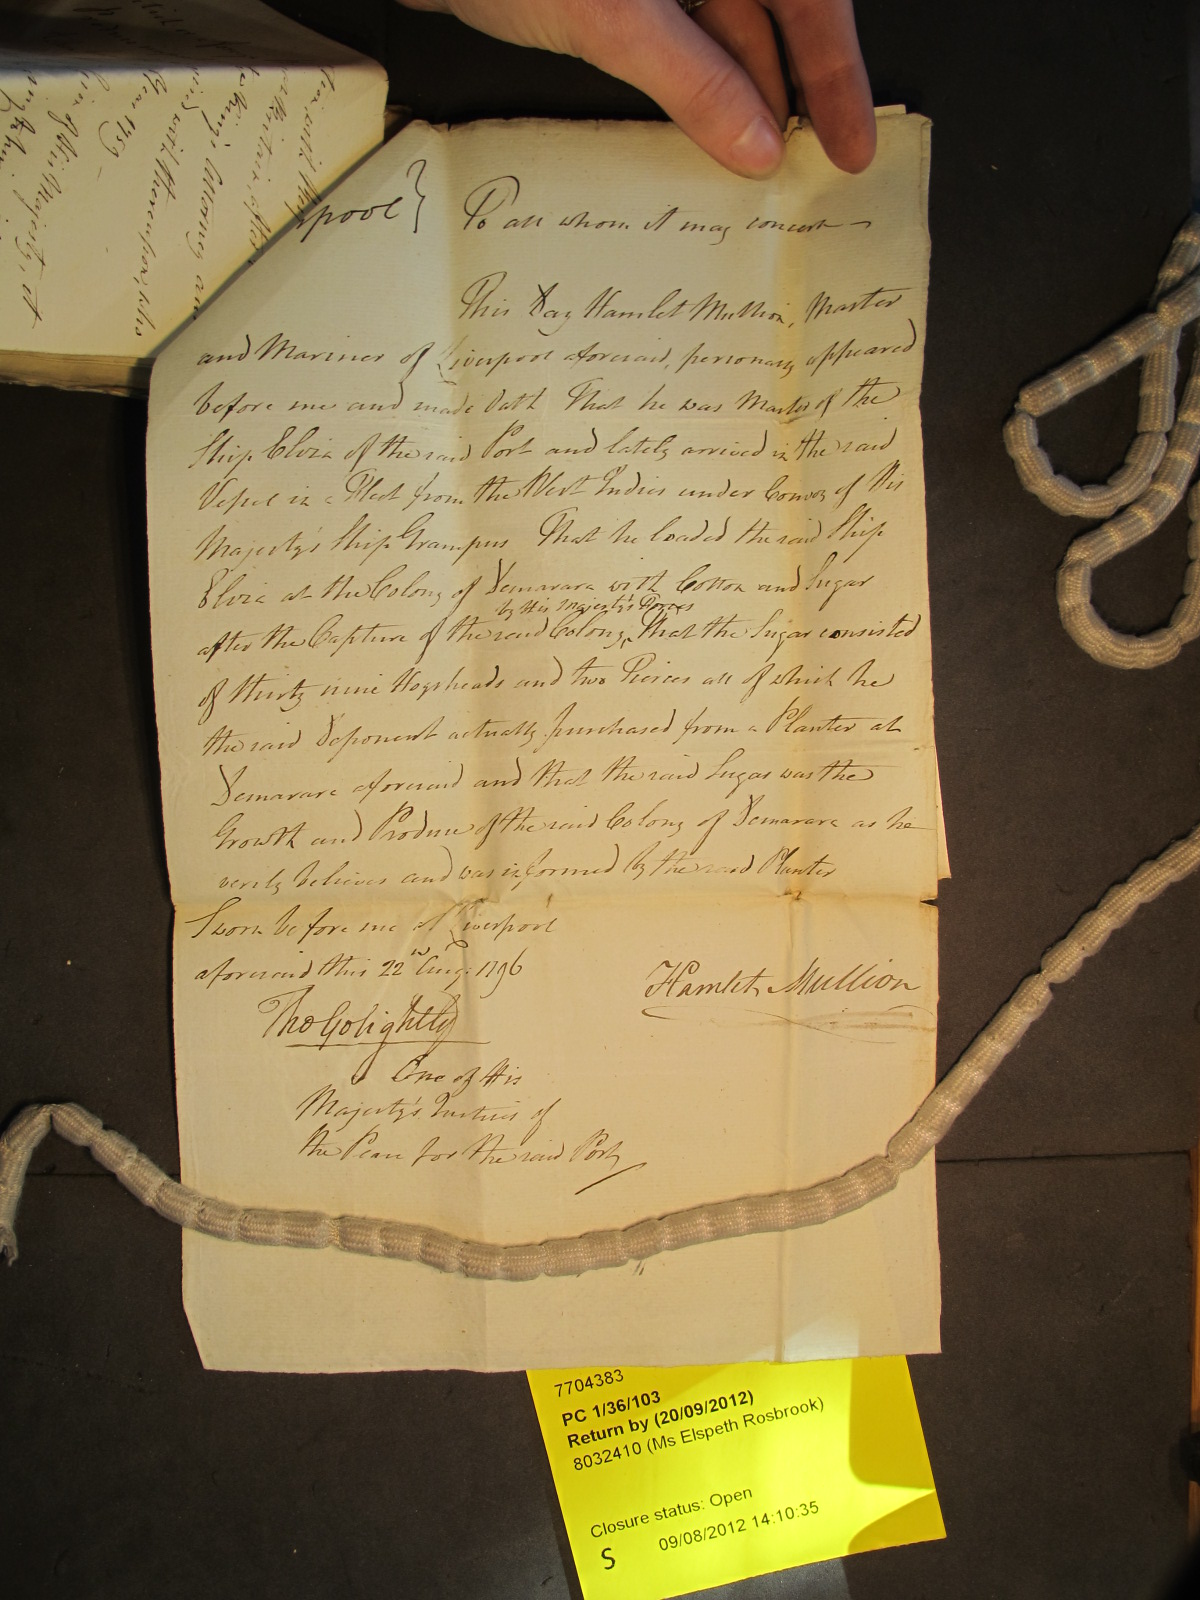 pool} To all whom it may concern
This Day Hamlet Mullion, Master
and Mariner of Liverpool aforesaid, personally appeared
before me and made Oath That he was Master of the
Ship Elvia of the said Port and lately arrived in the said
Vessel in a Fleet from the West Indies under Convoy of His
Majesty's Ship Grampus That he loaded the said Ship
Elvia at the Colony of Demarara with Cotton and Sugar
by His Majesty's Forces
after the Capture of the said Colony, That the Sugar consisted
of thirty nine Hogsheads and two Tierces all of which he
the said Deponent actually purchased from a Planter at
Demarara aforesaid and that the said Sugar was the
Growth and Produce of the said Colony of Demarara as he
verily believes and was informed by the said Planter
Sworn before me at Liverpool
aforesaid this 22nd Aug: 1796
Hamlet Mullion
Tho Golightly
One of His
Majesty's Justices of
the Peace for the said Port
7704383
PC 1/36/103
Return by (20/09/2012)
8032410 (Ms Elspeth Rosbrook)
Closure status: Open
S 09/08/2012 14:10:35